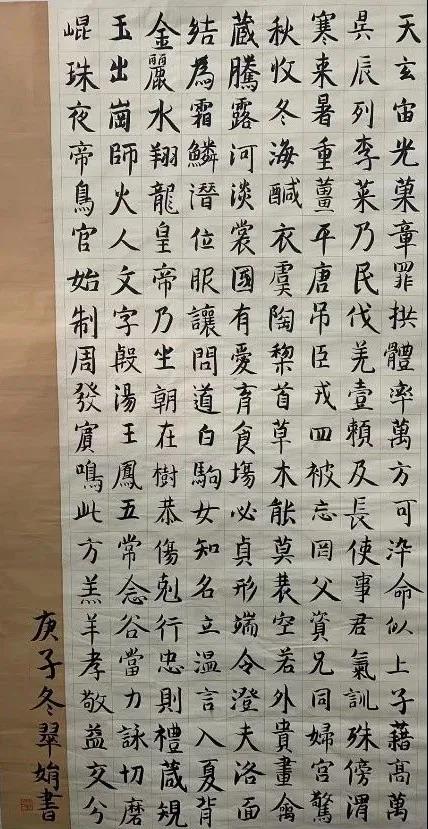 天玄宙光菓章罪拱體率萬方可染命似上子藉高萬
昃辰列李菜乃民伐羌壹賴及長使事君氣訓殊傍渭
寒来暑重薑平唐吊臣戎四被忘罔父資兄同婦宮驚
秋收冬海醎衣虞陶黎首草木能莫空若外貴畫禽
蔵騰露河淡裳國有愛育食場必貞形端令澄夫洛面
結為霜鱗潛位服讓問道白駒女知名立温言入夏背
金麗水翔龍皇帝乃坐朝在樹恭傷剋行忠則禮葴規
玉出崗師火人文字殷湯王鳳五常念谷當力詠切磨
崐珠夜帝鳥官始制周發賓鳴此方羔羊孝敬益交兮
庚子冬翠娟書